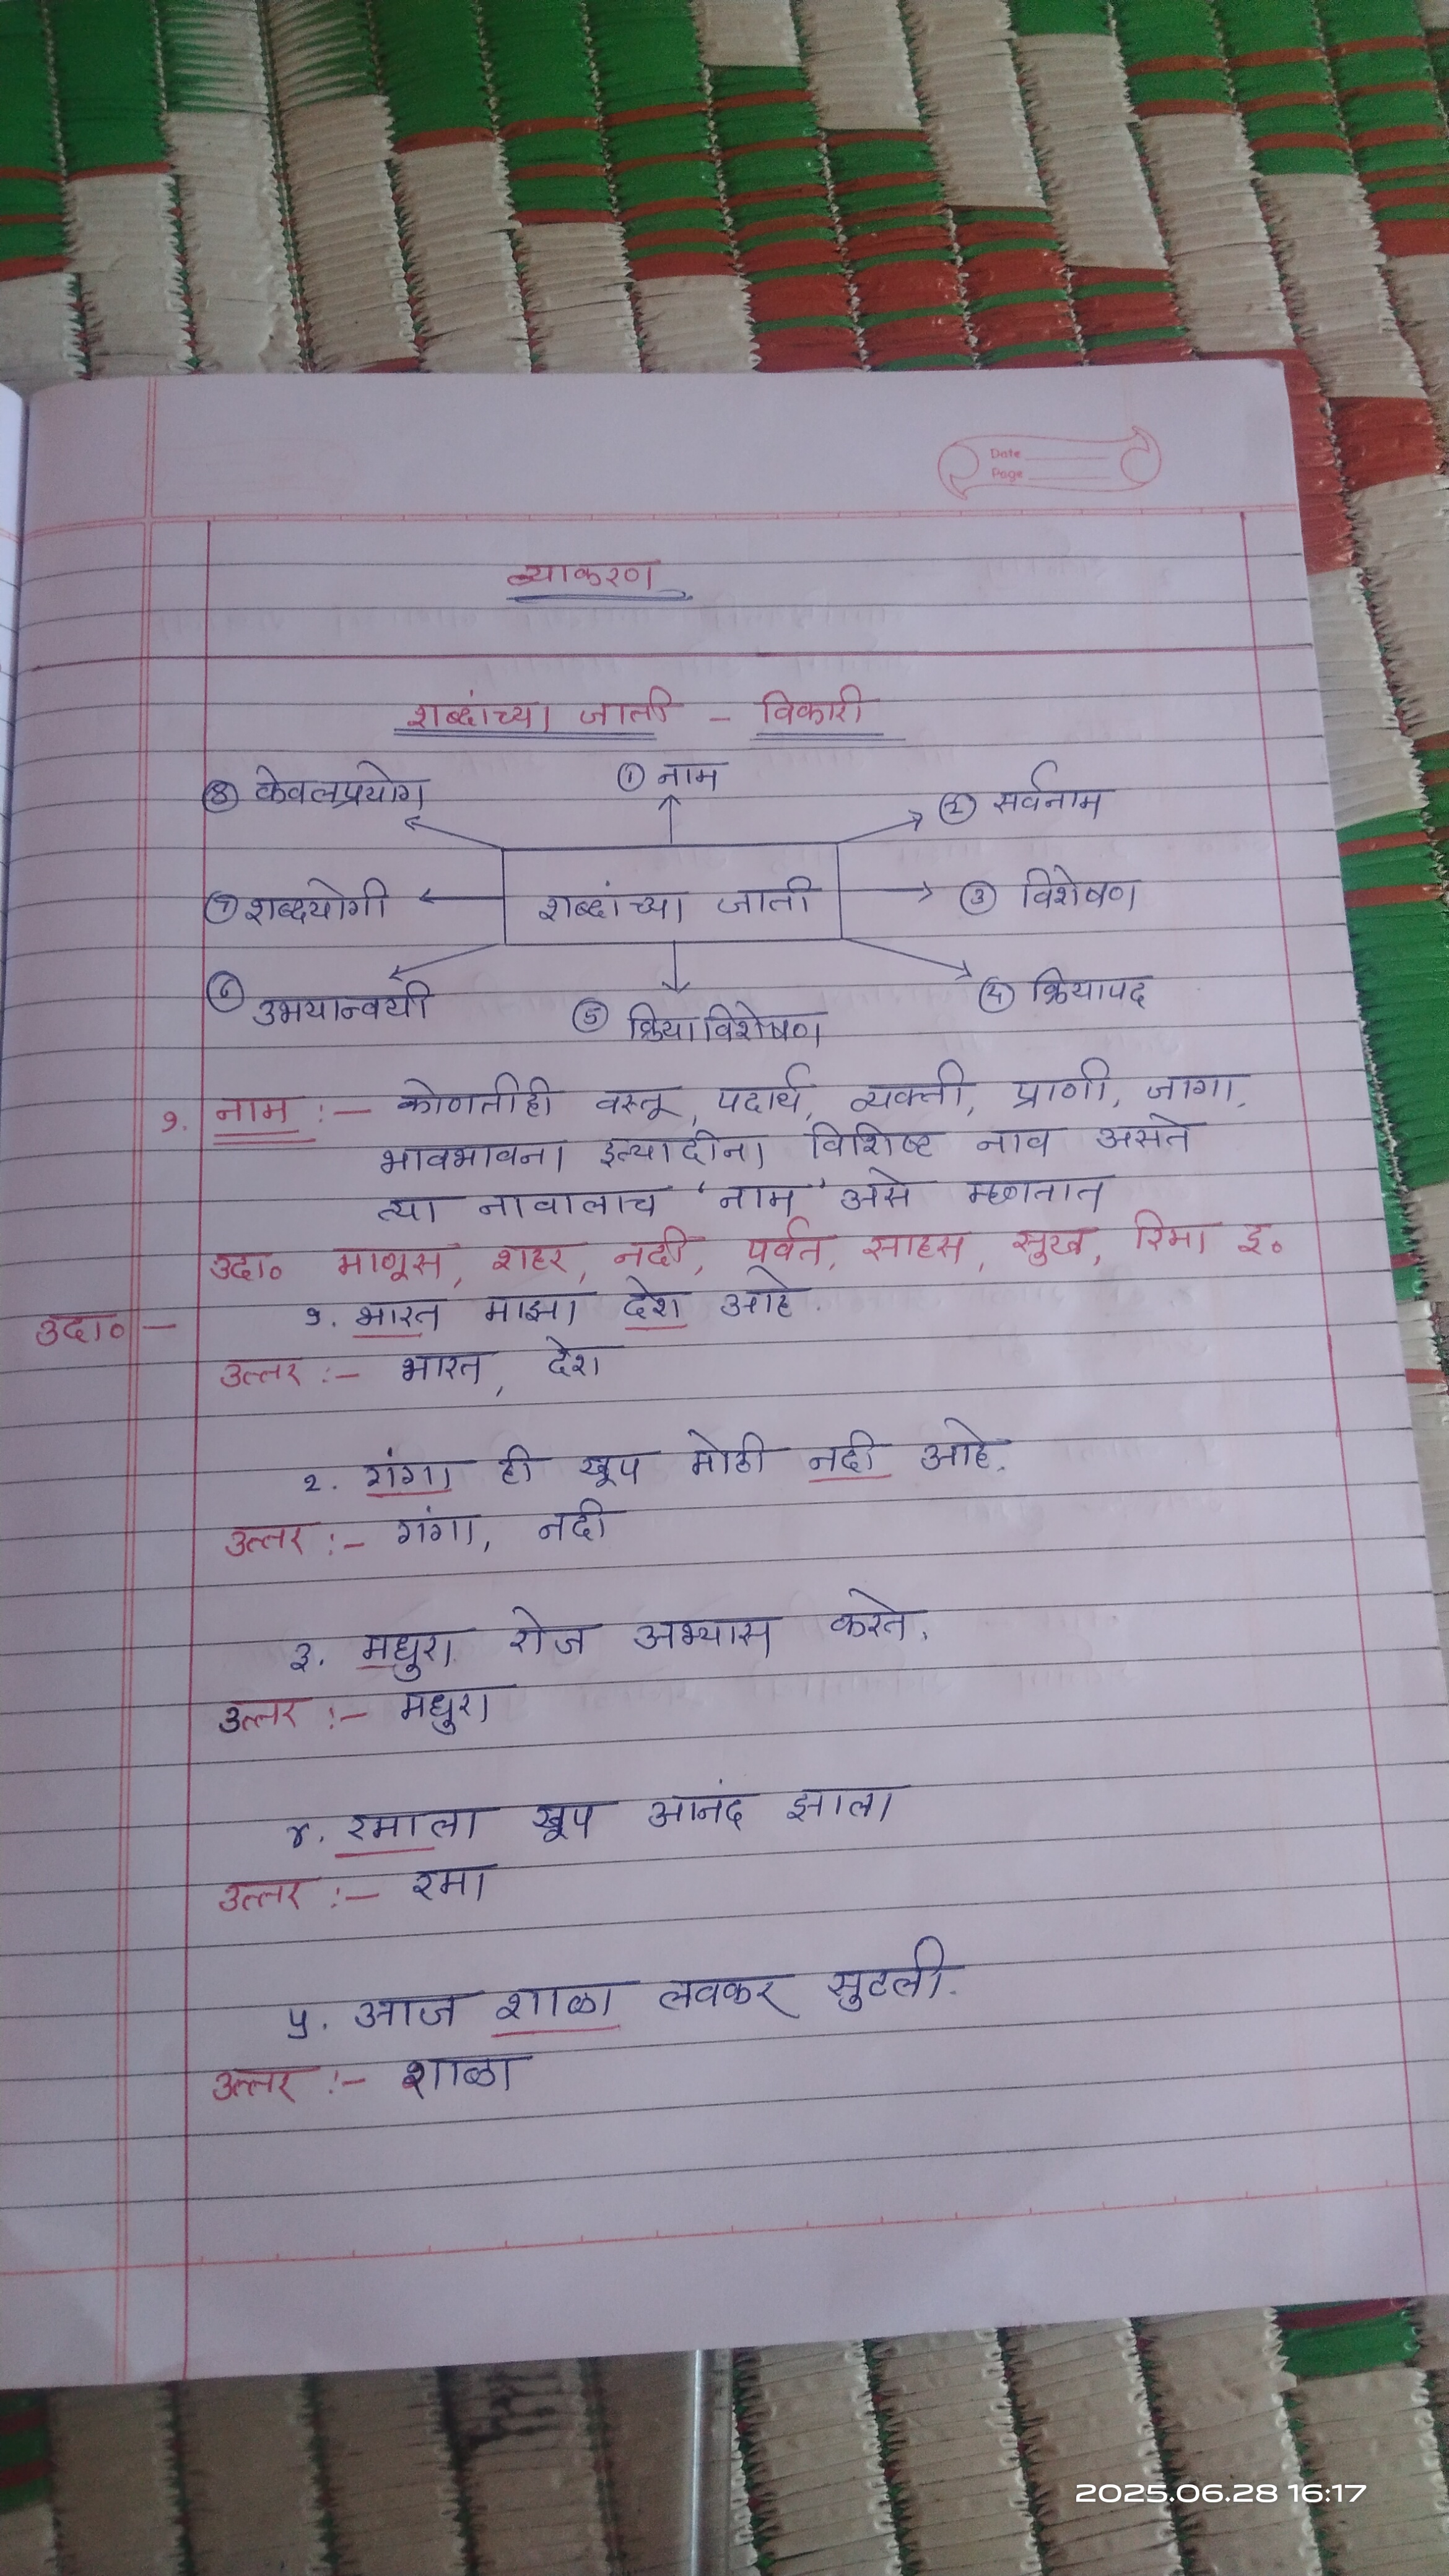 Date
Page
व्याकरण
शब्दांच्या जाती - विकारी
① नाम
② सर्वनाम
③ विशेषण
④ क्रियापद
⑤ क्रियाविशेषण
⑥ उभयान्वयी
⑦ शब्दयोगी
⑧ केवलप्रयोग
शब्दांच्या जाती
१. नाम :- कोणतीही वस्तू, पदार्थ, व्यक्ती, प्राणी, जागा,
भावभावना इत्यादींना विशिष्ट नाव असते
त्या नावालाच 'नाम' असे म्हणतात
उदा० माणूस, शहर, नदी, पर्वत, साहस, सुख, रिमा इ०
उदा० - १. भारत माझा देश आहे.
उत्तर :- भारत, देश
२. गंगा ही खूप मोठी नदी आहे.
उत्तर :- गंगा, नदी
३. मधुरा रोज अभ्यास करते.
उत्तर :- मधुरा
४. रमाला खूप आनंद झाला
उत्तर :- रमा
५. आज शाळा लवकर सुटली.
उत्तर :- शाळा
2025.06.28 16:17